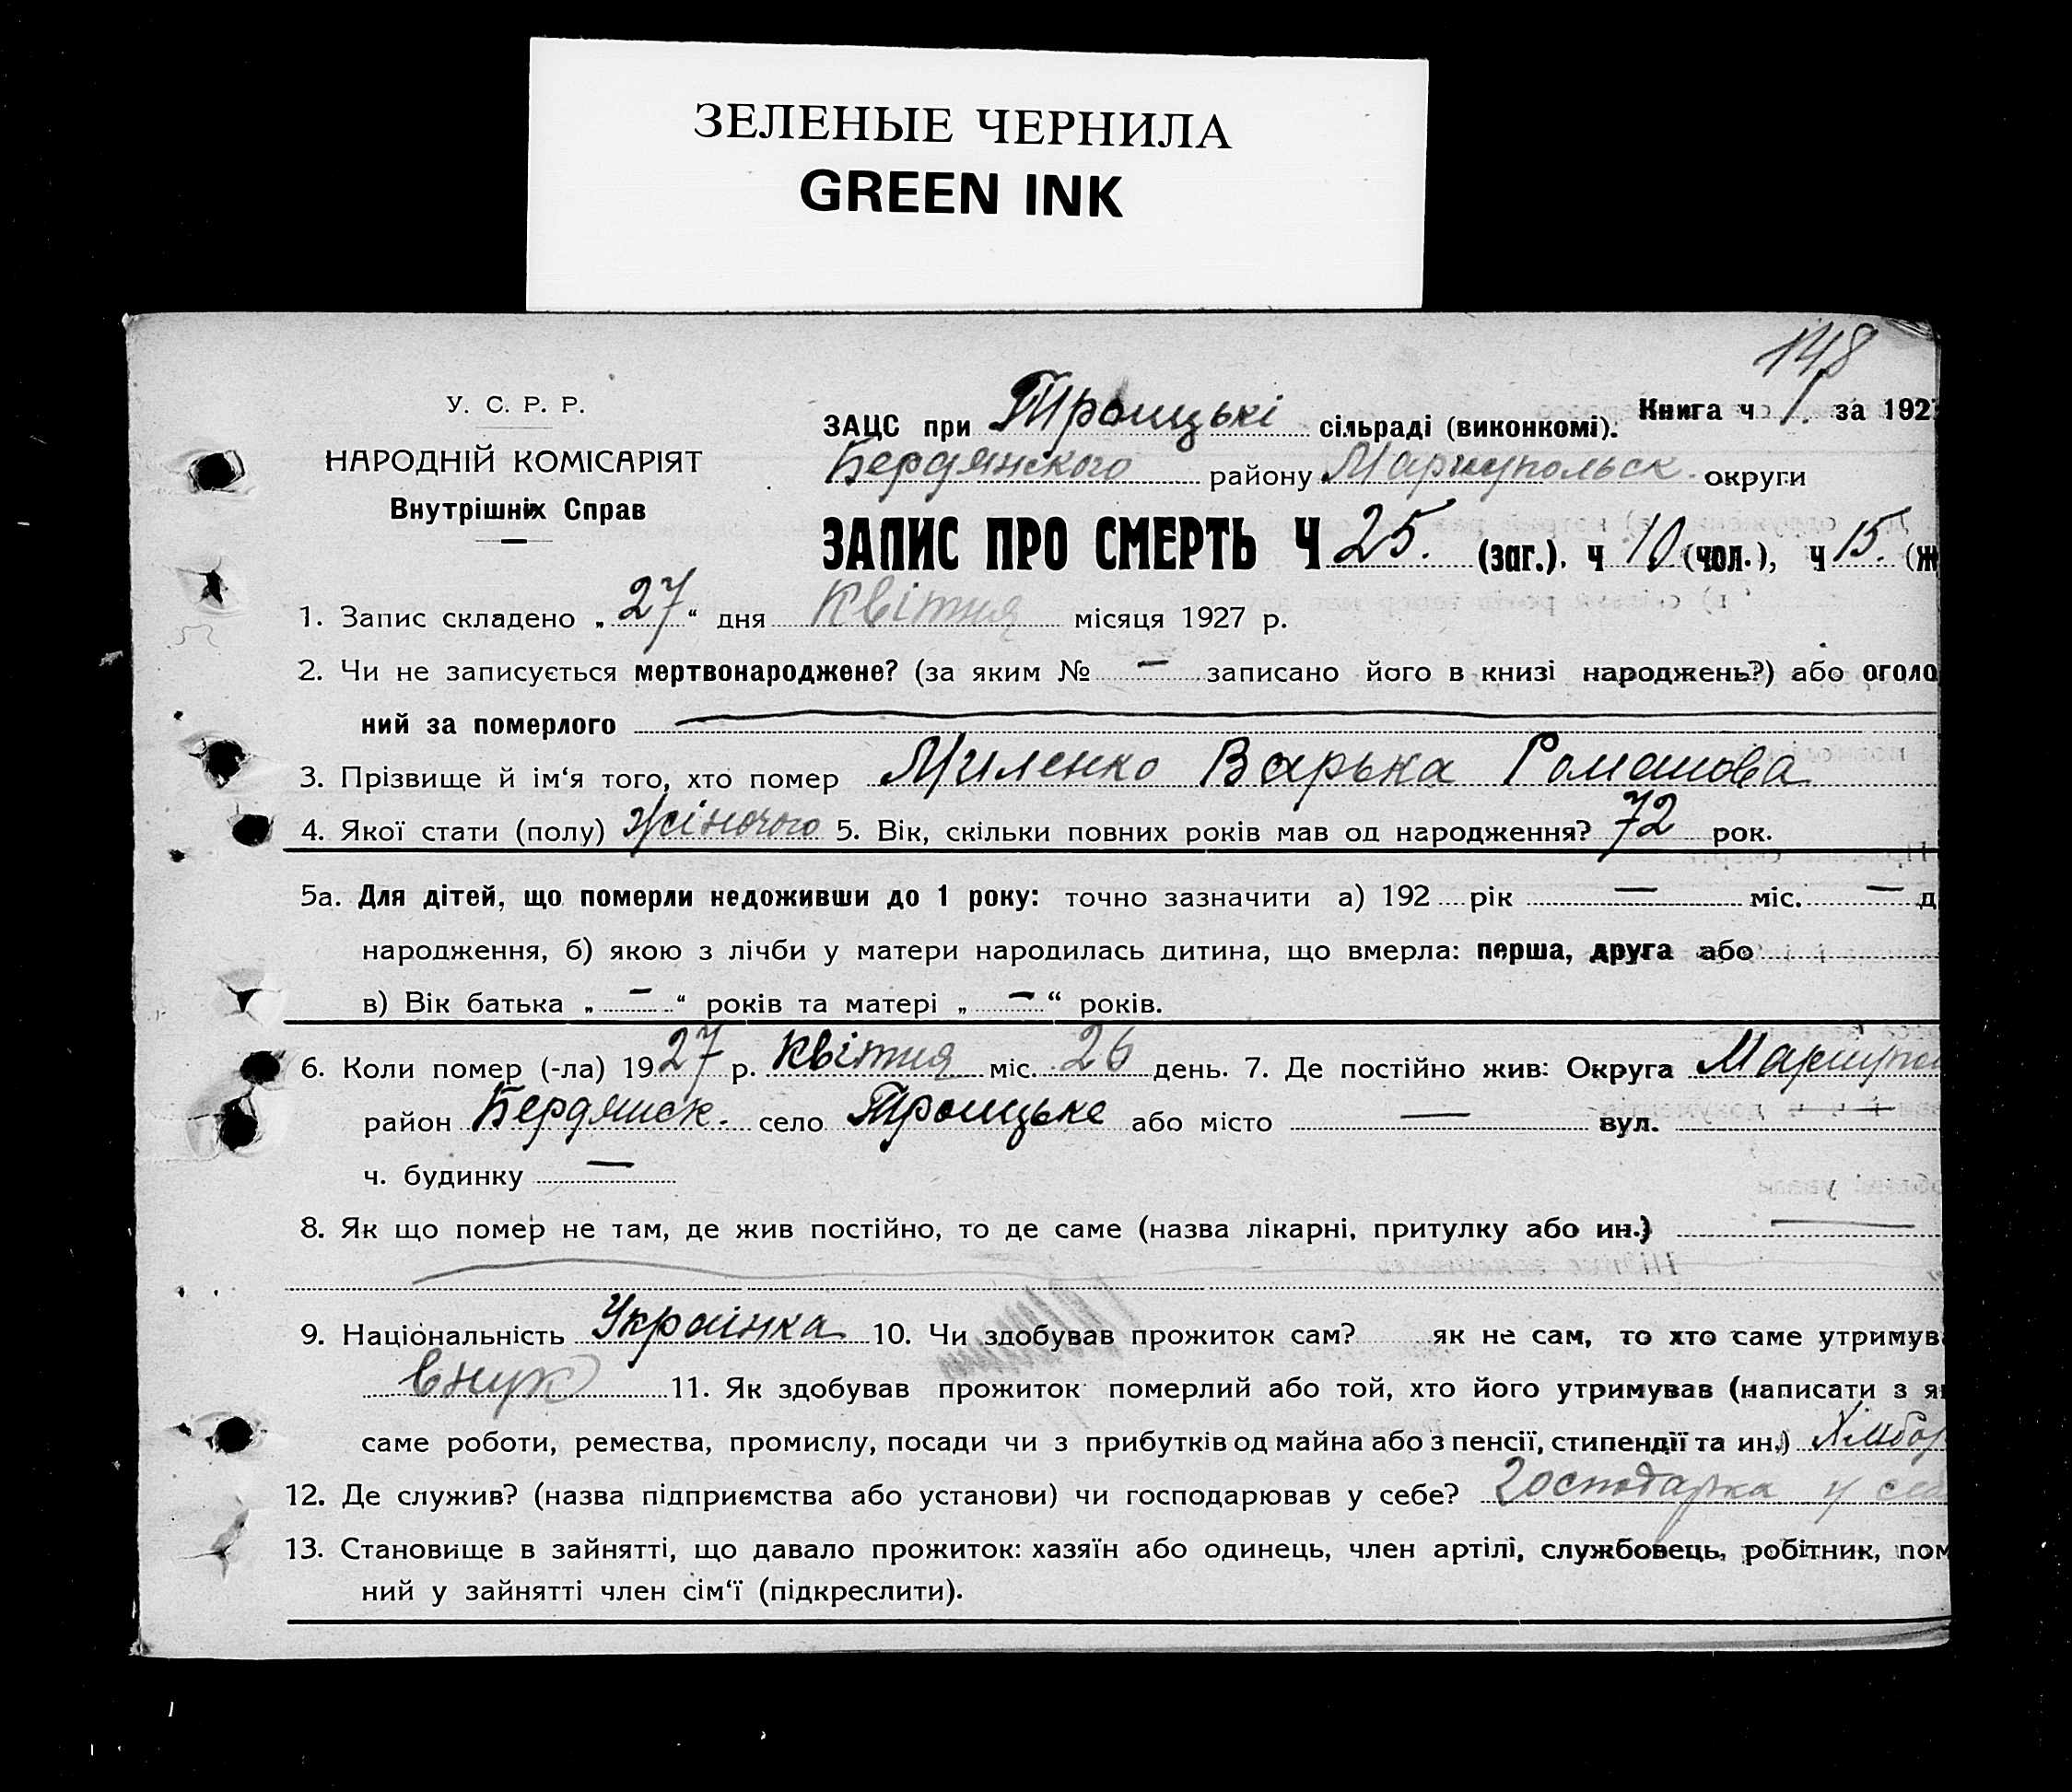 ЗЕЛЕНЫЕ ЧЕРНИЛА
GREEN INK
148
У. С. Р. Р.
НАРОДНІЙ КОМІСАРІЯТ
Внутрішніх Справ
ЗАЦС при Троицькі сільраді (виконкомі). Книга ч 1. за 1927
Бердянского району Мариупольськ. округи
ЗАПИС ПРО СМЕРТЬ Ч 25. (заг.). ч 10 (чол.), ч 15. (ж
1. Запис складено „ 27 “ дня Квітня місяця 1927 р.
2. Чи не записується мертвонароджене? (за яким № — записано його в книзі народжень?) або оголо
ний за померлого
3. Прізвище й ім‘я того, хто помер Миленко Варька Романова
4. Якої стати (полу) Жіночого 5. Вік, скільки повних років мав од народження? 72 рок.
5а. Для дітей, що померли недоживши до 1 року: точно зазначити а) 192 рік — міс. — д
народження, б) якою з лічби у матери народилась дитина, що вмерла: перша, друга або
в) Вік батька „ — “ років та матері „ — “ років.
6. Коли помер (-ла) 1927 р. Квітня міс. 26 день. 7. Де постійно жив: Округа Мариупол
район Бердянськ. село Троицьке або місто — вул. —
ч. будинку —
8. Як що помер не там, де жив постійно, то де саме (назва лікарні, притулку або ин.) —
9. Національність Українка 10. Чи здобував прожиток сам? як не сам, то хто саме утримув
внук 11. Як здобував прожиток померлий або той, хто його утримував (написати з я
саме роботи, ремества, промислу, посади чи з прибутків од майна або з пенсії, стипендії та ин.) Хлібор
12. Де служив? (назва підприємства або установи) чи господарював у себе? Господарка у себ
13. Становище в зайнятті, що давало прожиток: хазяїн або одинець, член артілі, службовець, робітник, пом
ний у зайнятті член сім‘ї (підкреслити).